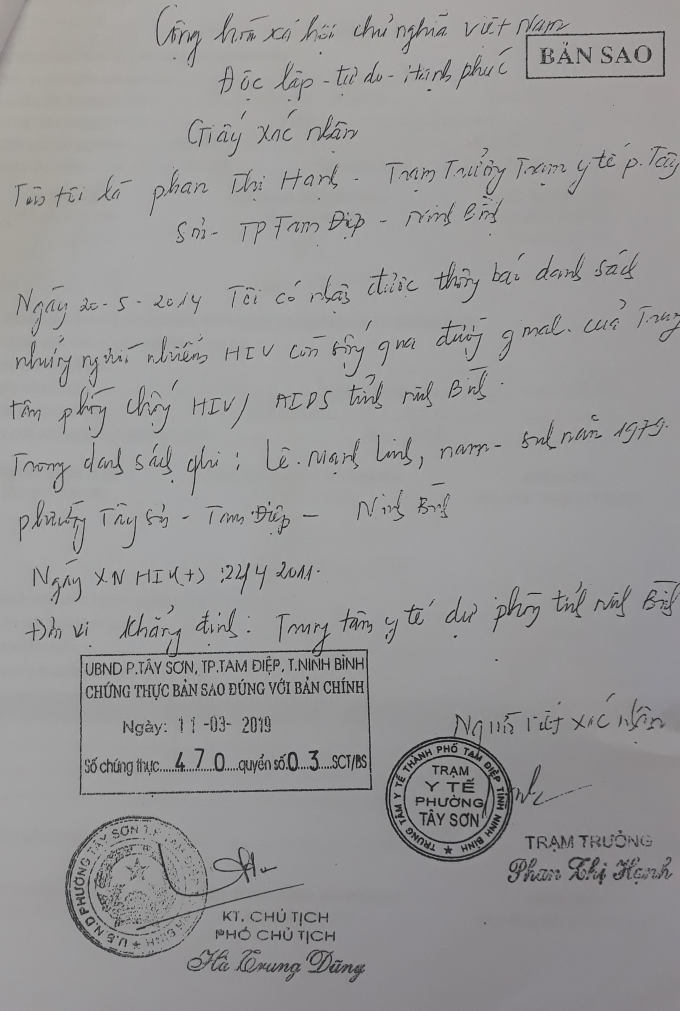 Cộng hoà xã hội chủ nghĩa việt Nam
BẢN SAO
Độc lập - tự do - Hạnh phúc
Giấy xác nhận
Tên tôi là phan Thị Hạnh - Trạm Trưởng Trạm y tế p. Tây
Sơn - TP Tam Điệp - Ninh Bình
Ngày 20-5-2014 Tôi có nhận được thông báo danh sách
những người nhiễm HIV còn sống qua đường gmal. của Trung
tâm phòng chống HIV/ AIDS tỉnh ninh Bình.
Trong danh sách ghi: Lê. Mạnh Linh, nam - sinh năm 1979.
phường Tây Sơn - Tam Điệp - Ninh Bình
Ngày XN HIV(+): 22/4 2011.
Đơn vị khẳng định: Trung tâm y tế dự phòng tỉnh ninh Bình
UBND P.TÂY SƠN, TP.TAM ĐIỆP, T.NINH BÌNH
CHỨNG THỰC BẢN SAO ĐÚNG VỚI BẢN CHÍNH
Ngày: 11-03-2019
Số chứng thực.....470....quyển số:03...SCT/BS
Người viết xác nhận
TRUNG TÂM Y TẾ THÀNH PHỐ TAM ĐIỆP TỈNH NINH BÌNH
TRẠM
Y TẾ
PHƯỜNG
TÂY SƠN
TRẠM TRƯỞNG
Phan Thị Hạnh
U.B.N.D PHƯỜNG TÂY SƠN
KT. CHỦ TỊCH
PHÓ CHỦ TỊCH
Hà Trung Dũng